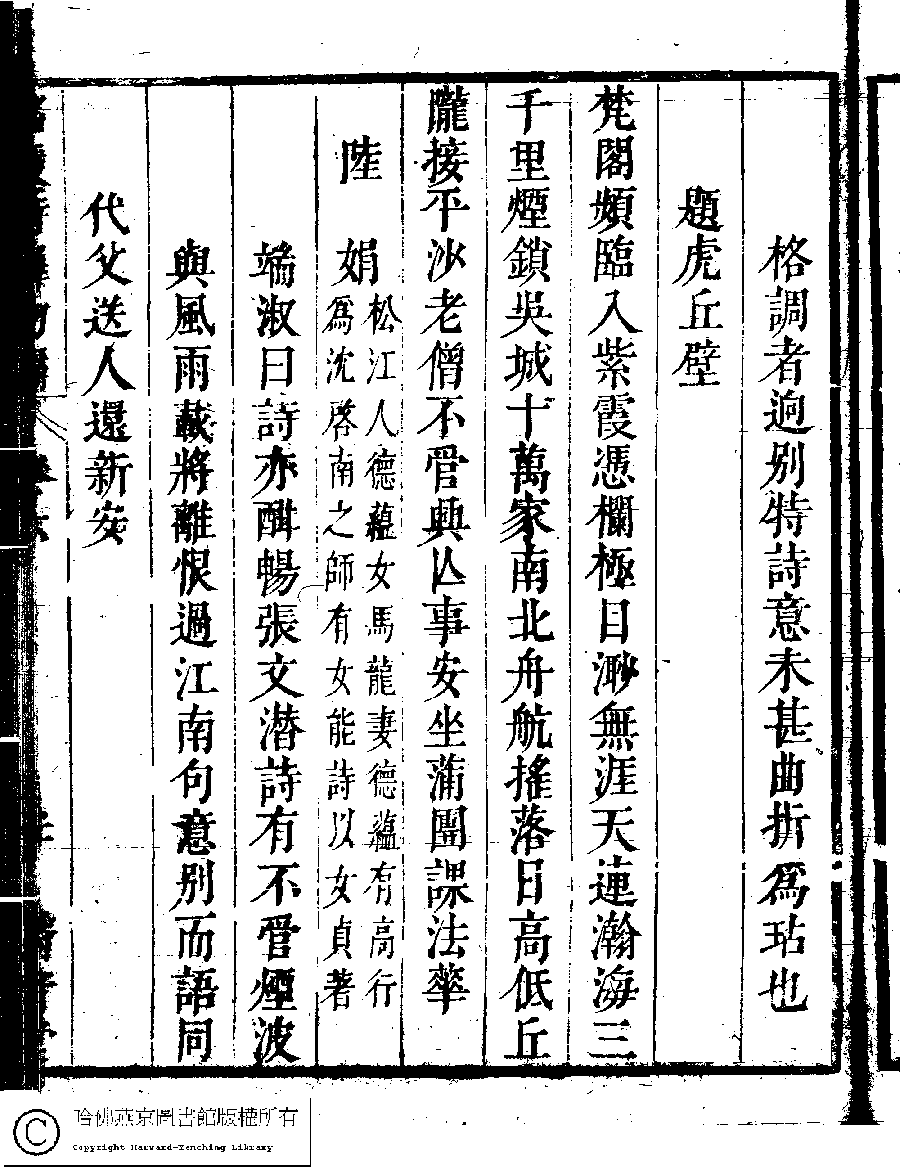 格調者迥別特詩意未甚曲折爲玷也
題虎丘壁
梵閣頻臨入紫霞憑欄極目渺無涯天連瀚海三
千里煙鎖吳城十萬家南北舟航搖落日高低丘
隴接平沙老僧不管興亾事安坐蒲團課法華
陸娟松江人德蘊女馬龍妻德蘊有高行
爲沈啓南之師有女能詩以女貞著
端淑曰詩亦酣暢張文潛詩有不管煙波
與風雨載將離恨過江南句意別而語同
代父送人還新安
哈佛燕京圖書館版權所有
Copyright Harvard-Yenching Library